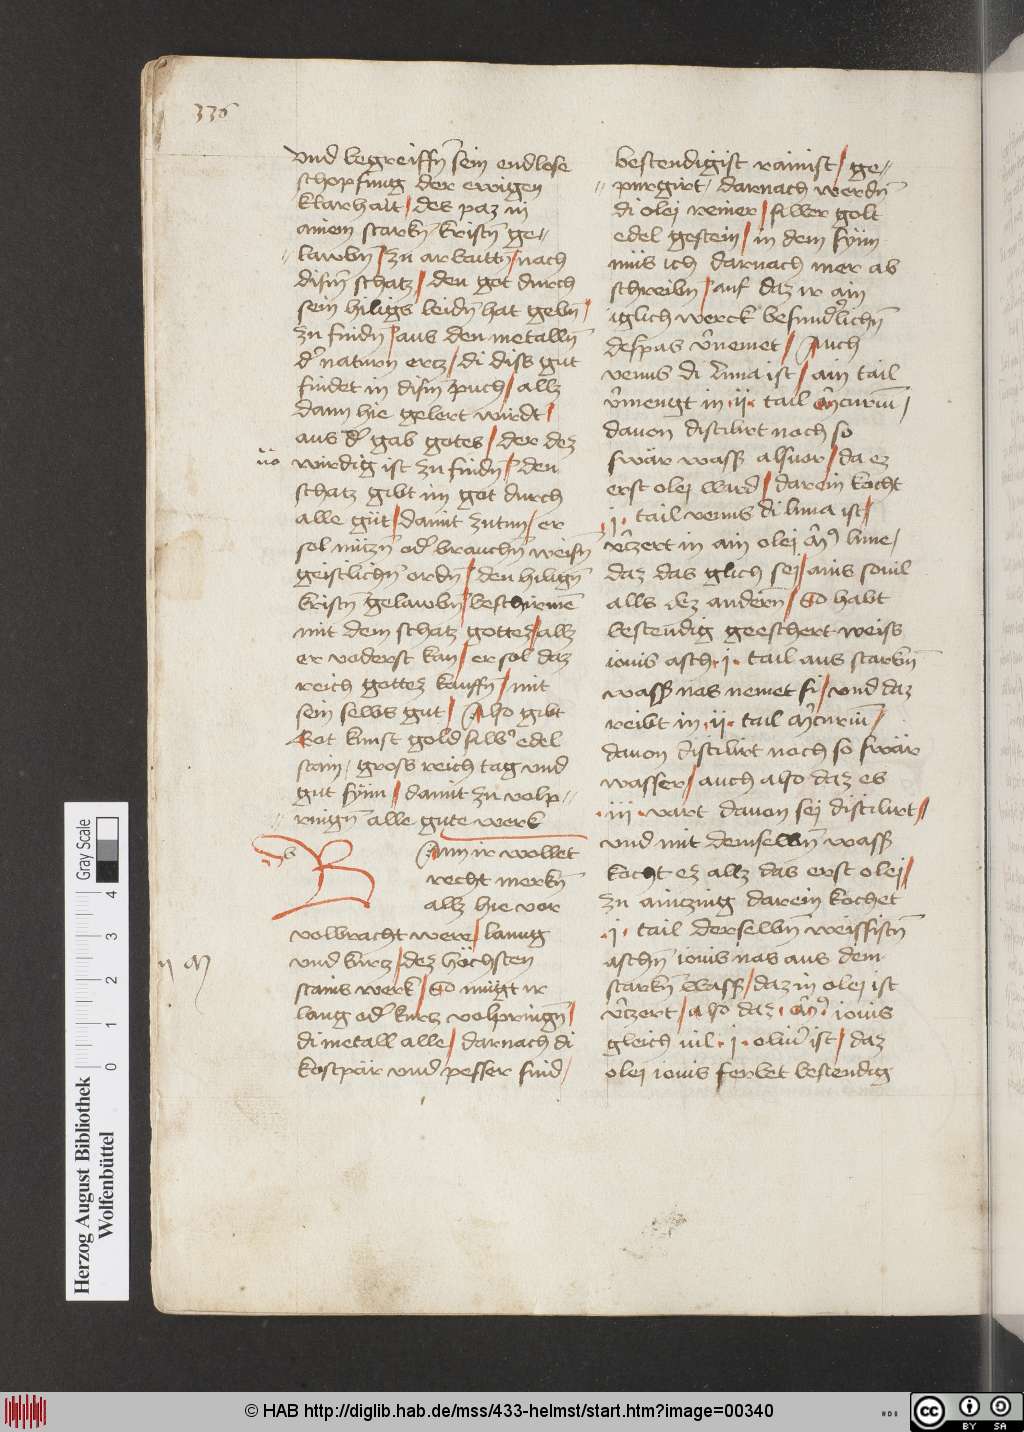 336
vnd begreiffn̄ sein endlose
schopfung der ewigen
klarhait / des paz in
ainem starkn̄ kristn̄ ge=
=lawbn̄ / zu arbaittn̄ / nach
disn̄ schatz / den got durch
sein hiligs leidn̄ hat gebn̄ /
zu findn̄ / aus den metalln̄
d' naturn ercz / di diss gut
findet in disn̄ puch / allz
dann hie gelert wirdt /
aus d' gab gotes / der dez
wirdig ist zu findn̄ / den
schatz gibt im got durch
alle güt / damit zutun / er
sol nüzn̄ od' brauchn̄ weisn̄
geistlichn̄ ordn̄ / den hilign̄
kristn̄ gelawbn̄ beschirmē
mit dem schatz gottez / allz
er voderst kan / er sol daz
reich gottez kauffn̄ / mit
sein selbs gut / Also gibt
Got kunst gold silb' edel
stain / gross reich tag vnd
gut synn / damit zu volp=
=ringn̄ alle gute werk
Ann ir wollet
recht merkn̄
allz hie vor
volbracht were / lanng
vnd kurcz / dez höchsten
stains werk / So mügt ir
lang od' kurcz volpringn̄ /
di metall alle / darnach di
kostpär vnd pesser sind /
bestendigist rainist / ge=
=purgirt / darnach werdn̄
di olei reiner / silber golt
edel gestein / in dem synn
müs ich darnach mer ab
schreibn̄ / auf daz ir ain
iglich werck besund'lichn̄
despas v'nemet / Auch
venus di luna ist / ain tail
v'mengt in .ii. tail m'curiu᷑ /
dauon distilirt noch so
swär wass' alsuor / da ez
erst olei ward / darein kocht
.i. tail venus di luna ist /
v'czert in ain olei m' lune /
daz das glich sei / ains souil
alls dez andern̄ / So habt
bestendig geeschert weiss
iouis asch .i. tail aus starkn̄
wass' nas nemet si / vnd daz
reibt in .ii. tail m'curiu᷑ /
dauon distilirt noch so swär
wasser / auch also daz es
.iii. wart dauon sei distilirt /
vnd mit demselbn̄ wass'
kocht ez allz das erst olei /
zu ainczing darein kochet
.i. tail derselbn̄ weissistn̄
aschn̄ iouis nas aus dem
starkn̄ wass' / daz in olei ist
v'czert / also daz . m' . iouis
gleich vil . i . oliu' ist / daz
olei iouis ferbet bestendig
Herzog August Bibliothek
Wolfenbüttel
Gray Scale
0 1 2 3 4
© HAB http://diglib.hab.de/mss/433-helmst/start.htm?image=00340
HAB
cc BY SA